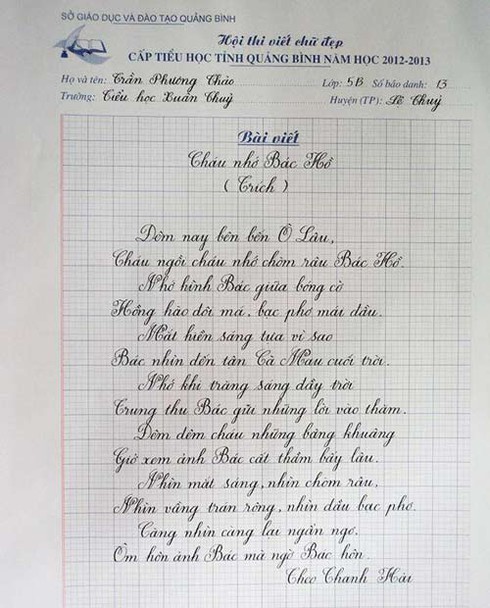 SỞ GIÁO DỤC VÀ ĐÀO TẠO QUẢNG BÌNH
Hội thi viết chữ đẹp
CẤP TIỂU HỌC TỈNH QUẢNG BÌNH NĂM HỌC 2012-2013
Họ và tên: Trần Phương Thảo Lớp: 5B Số báo danh: 13
Trường: Tiểu học Xuân Thuỷ Huyện (TP): Lệ Thuỷ
Bài viết
Cháu nhớ Bác Hồ
( Trích )
Đêm nay bên bến Ô Lâu,
Cháu ngồi cháu nhớ chòm râu Bác Hồ.
Nhớ hình Bác giữa bóng cờ
Hồng hào đôi má, bạc phơ mái đầu.
Mắt hiền sáng tựa vì sao
Bác nhìn đến tận Cà Mau cuối trời.
Nhớ khi trăng sáng đầy trời
Trung thu Bác gửi những lời vào thăm.
Đêm đêm cháu những bâng khuâng
Giở xem ảnh Bác cất thầm bấy lâu.
Nhìn mắt sáng, nhìn chòm râu,
Nhìn vầng trán rộng, nhìn đầu bạc phơ.
Càng nhìn càng lại ngẩn ngơ,
Ôm hôn ảnh Bác mà ngờ Bác hôn.
Theo Thanh Hải